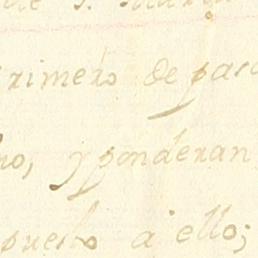 de S.
rimero de pas
no, y ponderan
puesto a ello;